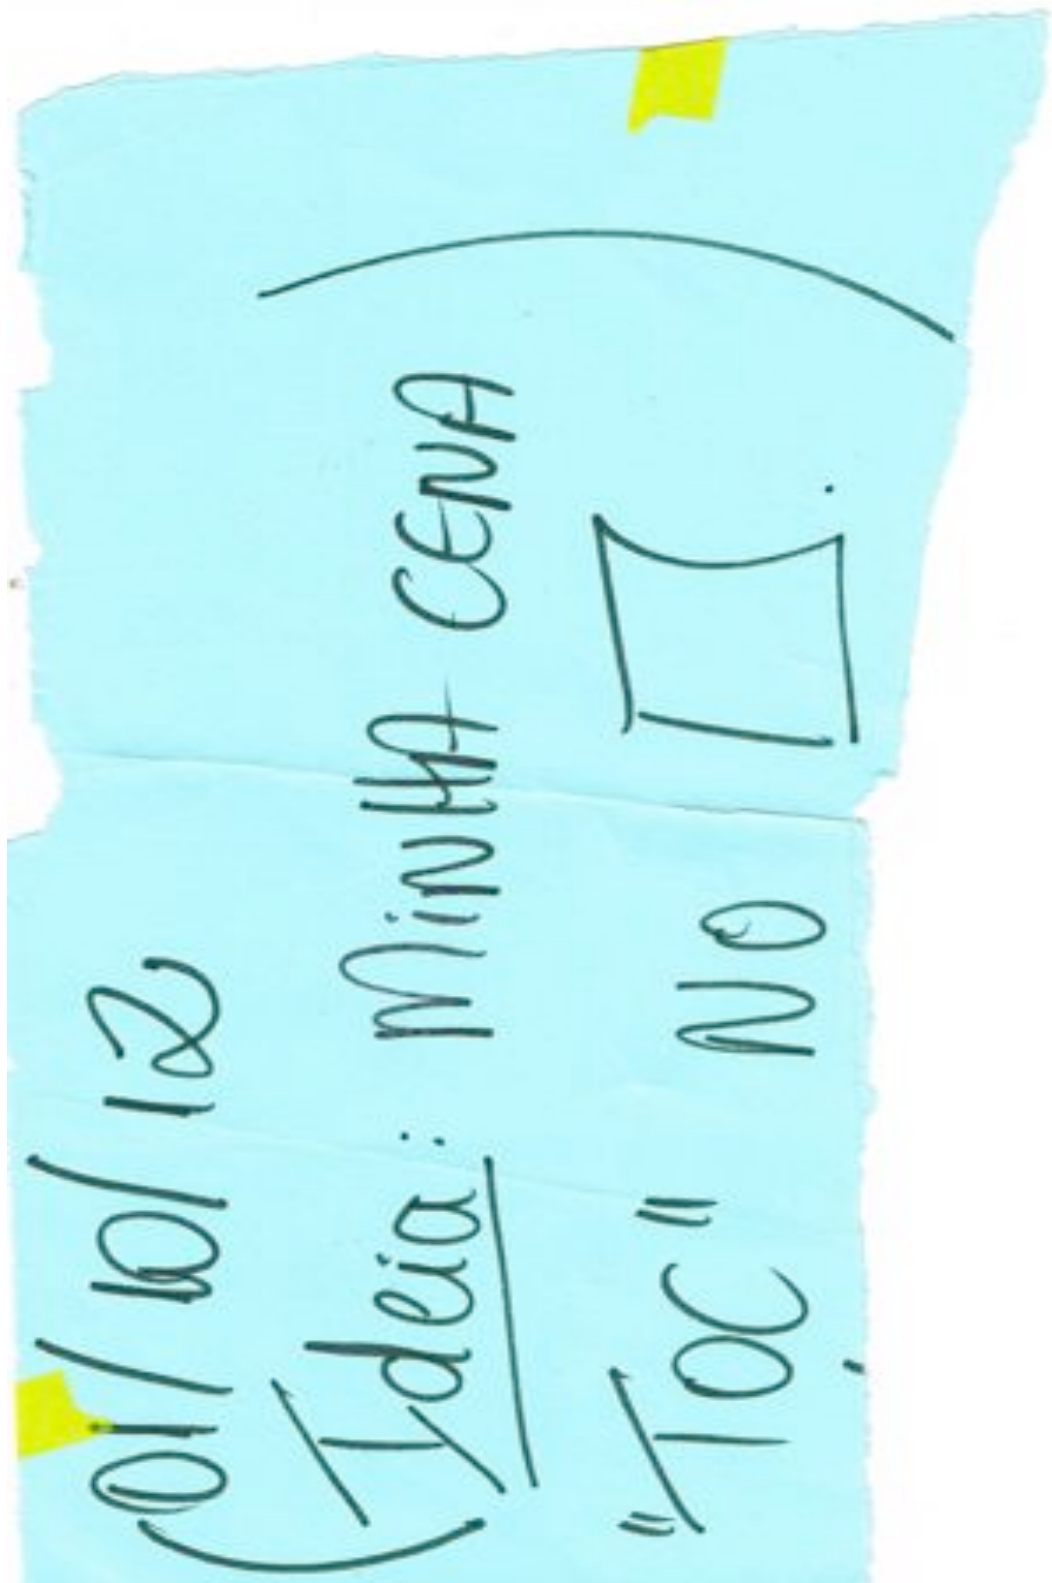 01/10/12
(Ideia: MINHA CENA
"TOC" NO □.)